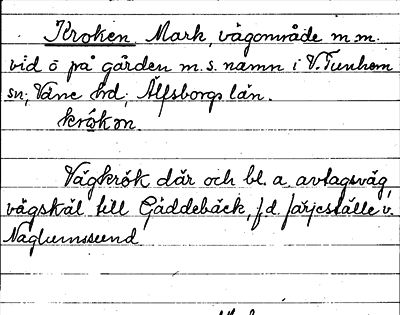 Kroken Mark, vägområde m.m.
vid ö på gården m. s. namn i V. Tunhem
sn; Väne hd; Älfsborgs län.
krókən.
Vägkrök där och bl. a. avtagsväg,
vägskäl till Gäddebäck, f.d. färjeställe v.
Naglumssund